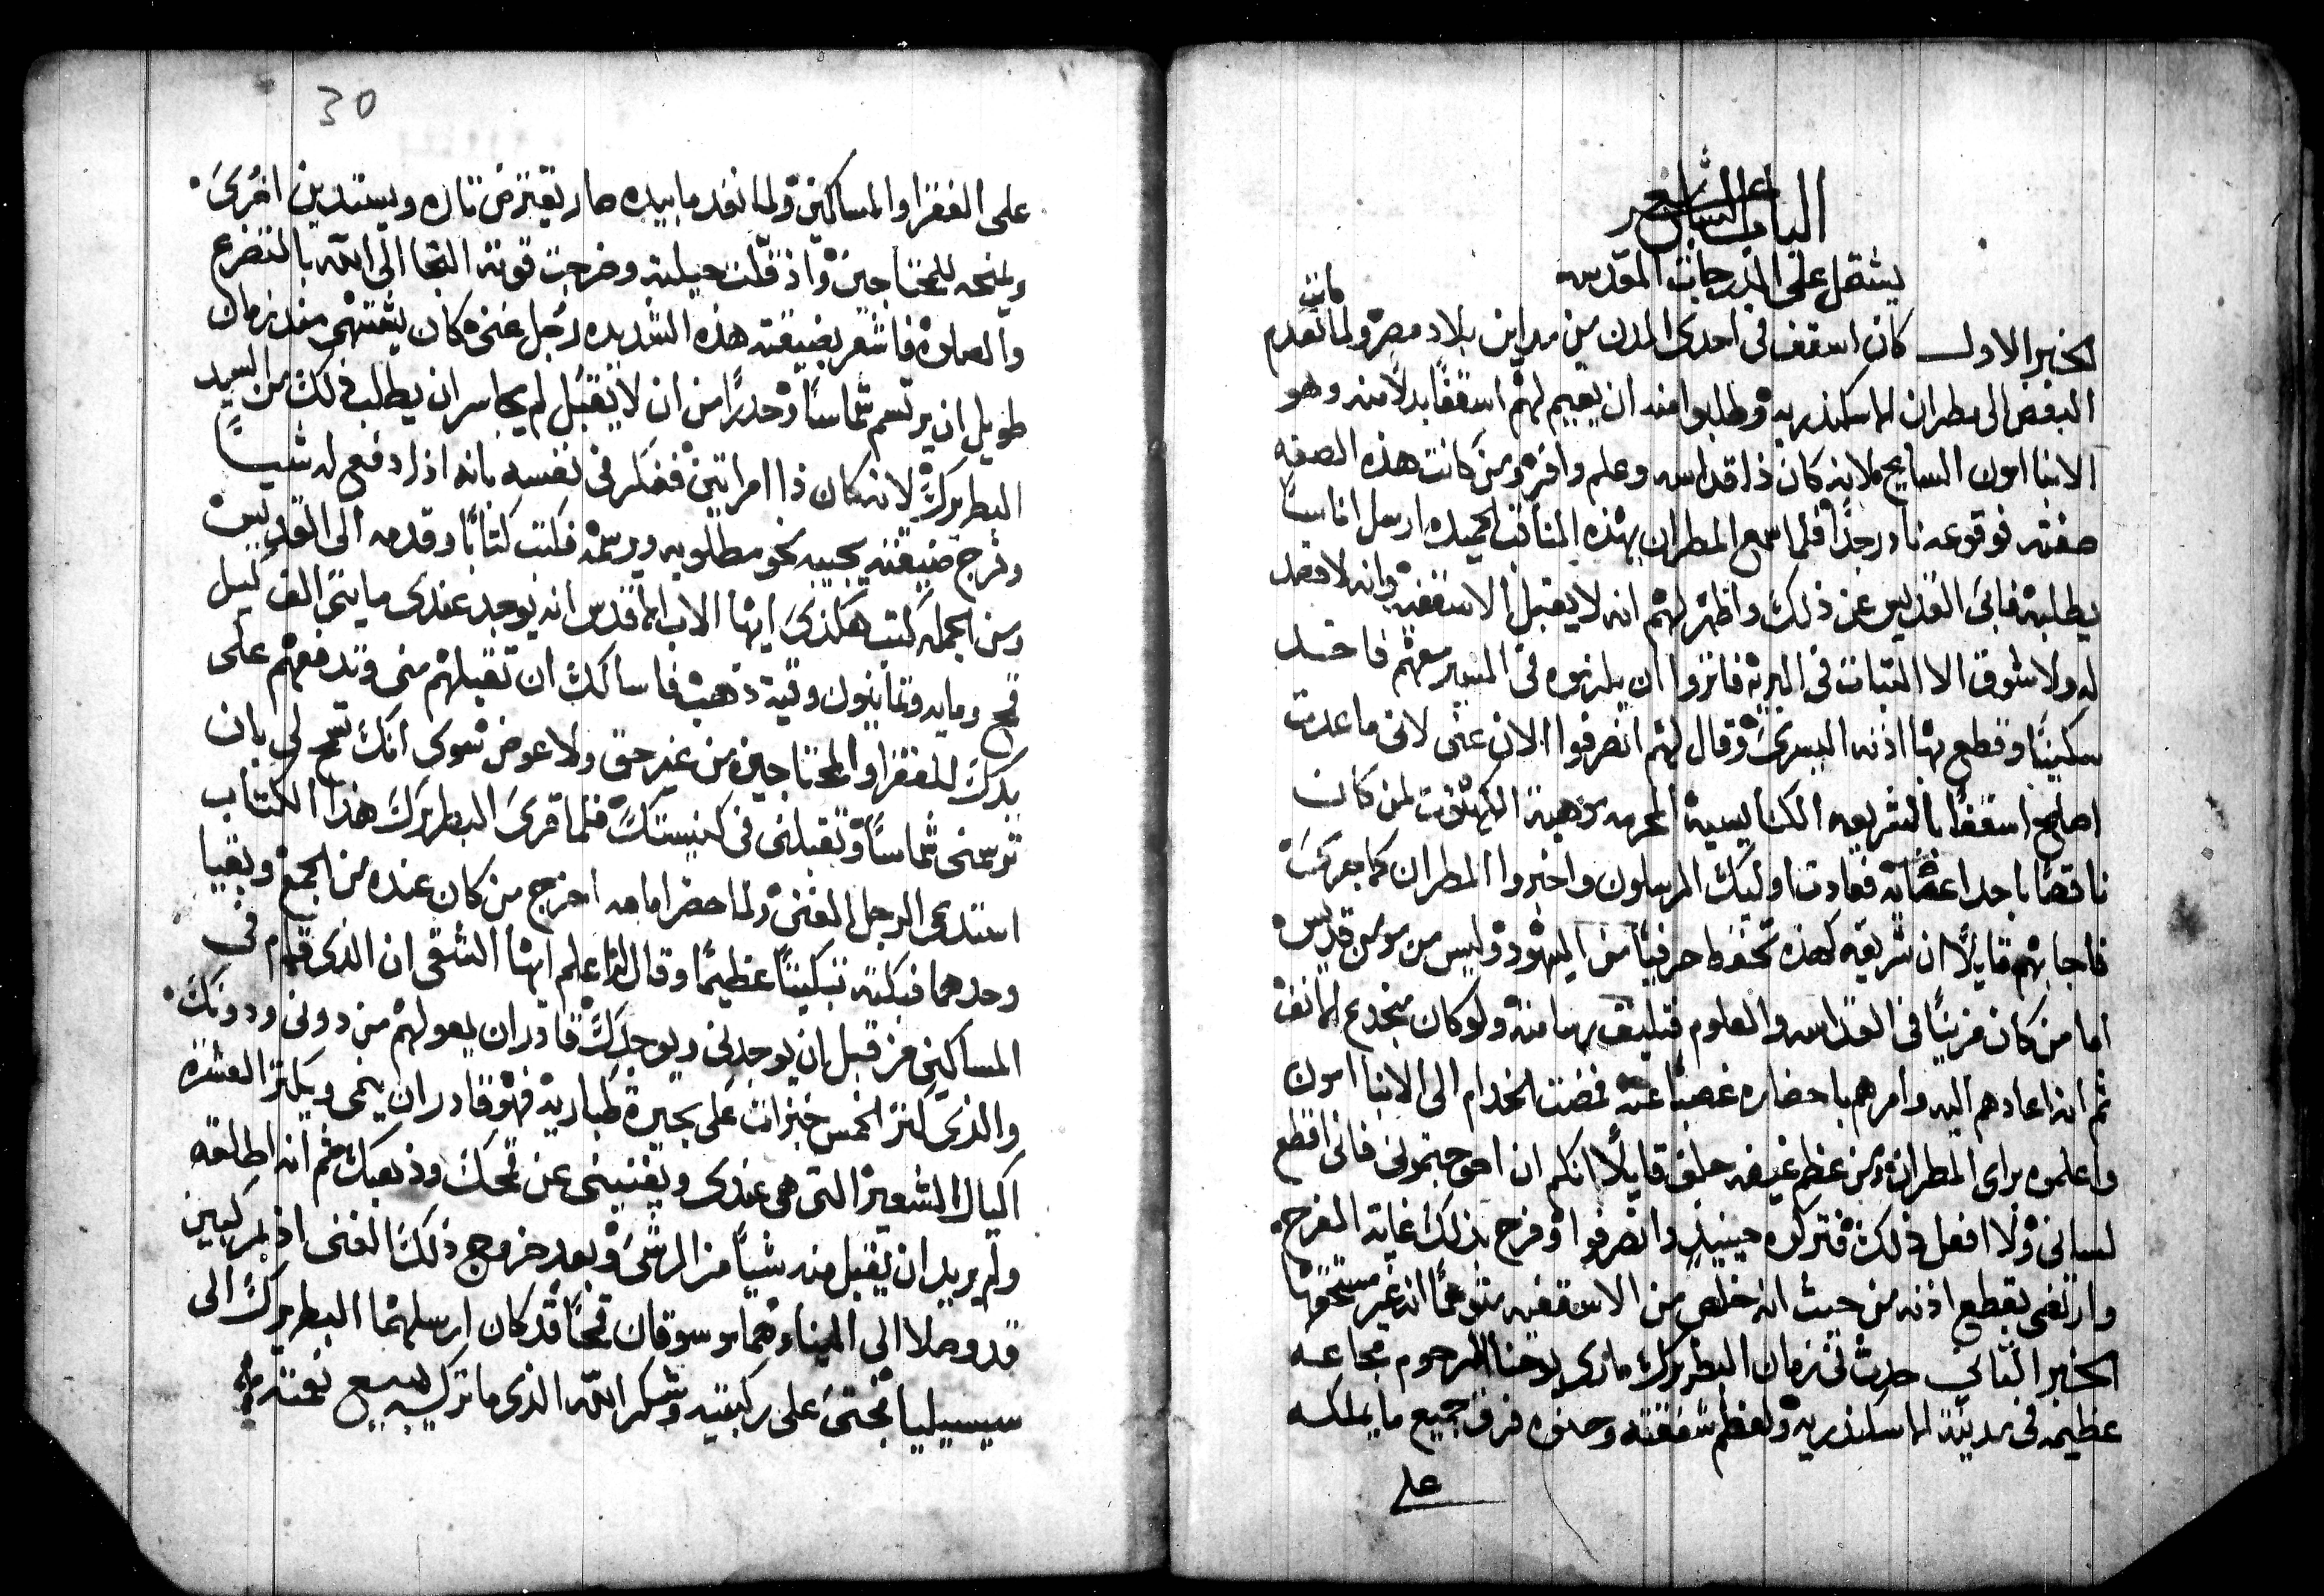 الباب السابع عشر
يشتمل على الدرجات المقدسه
الخبر الاول كان اسقف في احدى المدن من مداين بلاد مصر ولما تقدم
مات
البعض الى مطران الاسكندريه وطلبوا منه ان يقيم لهم اسقفًا بدلًا منه وهو
الانبا امون السايح لانه كان ذا قداسه وعلم وافر ومن كانت هذه الصفه
صفته فوقوعه نادر جدًا فلما سمع المطران بهذه المناقب الحميده ارسل اناسًا
يطلبه فابى القديس عن ذلك واظهر لهم انه لا يقبل الاسقفيه وانه لا قصد
له ولا شوق الا الثبات في البريه فاتزوا ان يلزموه في المسير معهم فاخد
سكينًا وقطع بها اذنه اليسرى وقال لهم انصرفوا الان عني لاني ما عدت
اصلح اسقفًا بالشريعه الكنايسية المحرمه وهبة الكهنوت لمن كان
ناقصًا باحد اعضايه فعادت اوليك المرسلون واخبروا المطران كما جرى
فاجابهم قايلًا ان شريعه كهذه تحفظ حرفيًا من اليهود وليس من مومن قديس
اما من كان مزينًا في القداسه والعلوم فتليق به امانته ولو كان مجدوع الانف
ثم انه اعادهم اليه وامرهم باحضاره غصبًا عنه فمضت الخدام الى الانبا امون
واعلموه براي المطران ومن عظم غيضه حلف قايلًا انكم ان احوجتموني فاني اقطع
لساني ولا افعل ذلك فتركوه حينيذٍ وانصرفوا وفرح بذلك غاية الفرح
وارتضى بقطع اذنه من حيث انه خلص من الاسقفيه متوهمًا انه غير مستحقها
الخبر الثاني حدث في زمان البطريرك ماري يوحنا الرحوم مجاعه
عظيمه في مدينة الاسكندريه ولعظم شفقته وحنوه فرق جميع ما يملكه
على
30
على الفقرا والمساكين ولما نفد ما بيده صار يقترض تاره ويستدين اخرى
ويمنحه للمحتاجين واذ قلت حيلته وخرجت قوته التجا الى الله بالتضرع
والصلوه فاشعر بضيقته هذه الشديده رجل غني كان يشتهي منذ زمان
طويل ان يرتسم شماسًا وحدرًا من ان لا يقبل لم يجاسر ان يطلب ذلك من السيد
البطريرك لانه كان ذا امراتين ففكر في نفسه بانه اذا دفع له شيًا
وفرج ضيقته يجيبه نحو مطلوبه ويرسمه فكتب كتابًا وقدمه الى القديس
ومن الجمله كتب هكذى ايها الاب الاقدس انه يوجد عندى مايتى الف كيل
قمح ومايه وثمانون وقية ذهب فاسالك ان تقبلهم مني وتدفعهم على
يدك للفقرا والمحتاجين من غير حق ولا عوض سوى انك تسمح لي بان
ترسمني شماسًا وتقبلني في كنيستك فلما قرى البطريرك هذا الكتاب
استدعى الرجل الغني ولما حضر امامه اخرج من كان عنده من الجمع وبقيا
وحدهما فبكته تبكيتًا عظيمًا وقال له اعلم ايها الشقي ان الذى قوام في
المساكين من قبل بان يوجدني ويوجدك قادر ان يعولهم من دوني ودونك
والذى كثر الخمس خبزات على بحيرة طباريه فهو قادر ان ينمي ويكثر العشره
اكيال الشعير التي هي عندى ويغنيني عن قمحك وذهبك ثم انه اطلقه
ولم يريد ان يقبل منه شيًا من الرشى وبعد خروج ذلك الغني اذ بمركبين
قد وصلا الى المينا وهما موسوقان قمحًا قد كان ارسلهما البطريرك الى
سيسيليا فجثى على ركبتيه وشكر الله الذى ما تركه يبيع نعمته